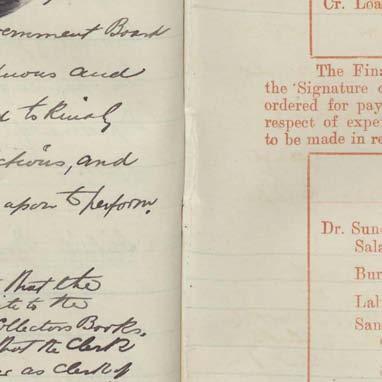 vernment Board
uous and
d to Rivaly
ctions, and
upon to perform.
t that the
ite to the
ollectors Books.
that the Clerk
ee as clerk of
Cr. Loa
The Fina
the 'Signature o
ordered for pay
respect of expe
to be made in re
Dr. Sun
Sala
Bur
Lal
San